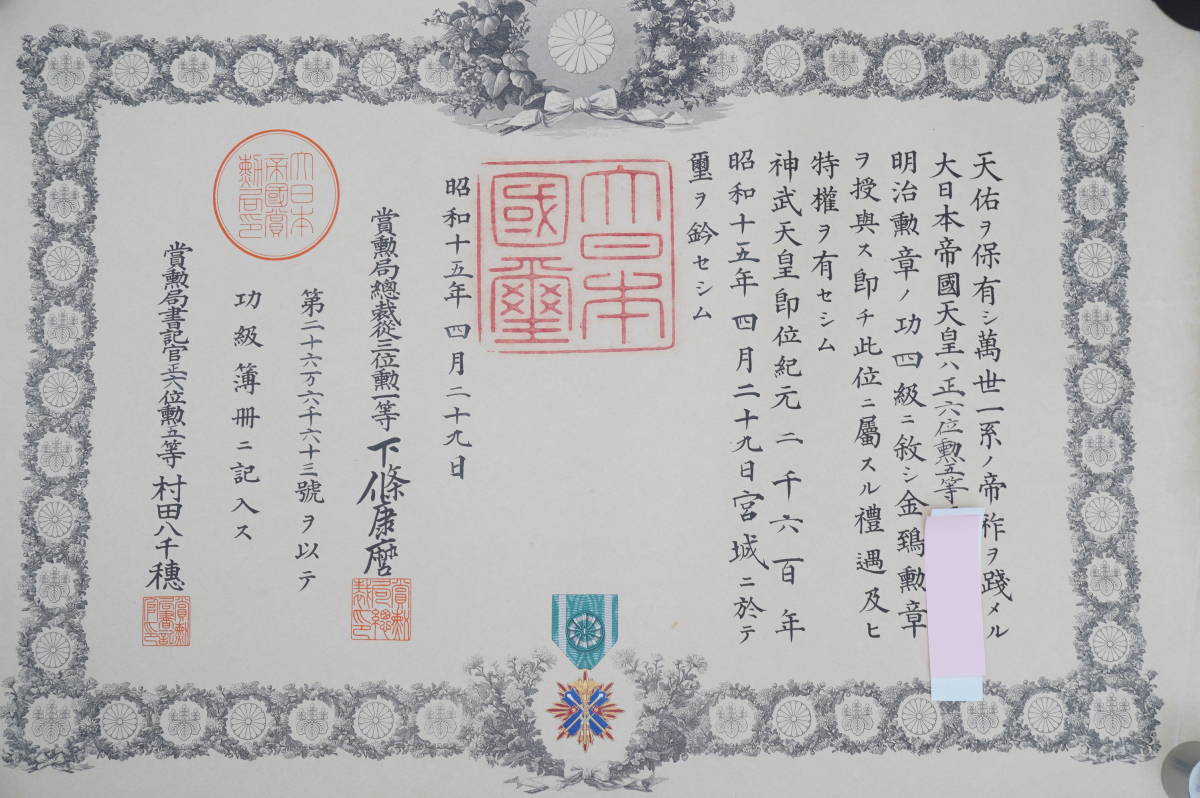 天佑ヲ保有シ萬世一系ノ帝祚ヲ踐メル
大日本帝國天皇ハ正六位勲五等
明治勲章ノ功四級ニ敘シ金鵄勲章
ヲ授與ス即チ此位ニ屬スル禮遇及ヒ
特權ヲ有セシム
神武天皇即位紀元二千六百年
昭和十五年四月二十九日宮城ニ於テ
璽ヲ鈐セシム
大日本
國璽
昭和十五年四月二十九日
賞勲局總裁從三位勲一等下條康麿
賞勲局總裁印
第二十六万六千六十三號ヲ以テ
功級簿册ニ記入ス
大日本
帝國賞
勲局印
賞勲局書記官正六位勲五等村田八千穗
賞勲局書記官印